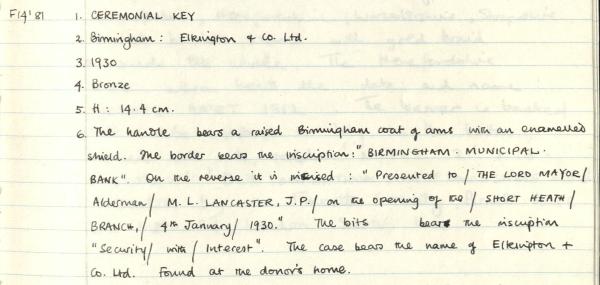 F14'81 1. CEREMONIAL KEY
2. Birmingham: Elkington & Co. Ltd.
3. 1930
4. Bronze
5. H: 14.4 cm.
6. The handle bears a raised Birmingham coat of arms with an enamelled
shield. The border bears the inscription: "BIRMINGHAM. MUNICIPAL.
BANK". On the reverse it is incised: "Presented to / THE LORD MAYOR /
Alderman / M. L. LANCASTER, J.P. / on the opening of the / SHORT HEATH /
BRANCH, / 4th January / 1930." The bits bear the inscription
"Security / with / Interest". The case bears the name of Elkington &
Co. Ltd. Found at the donor's home.